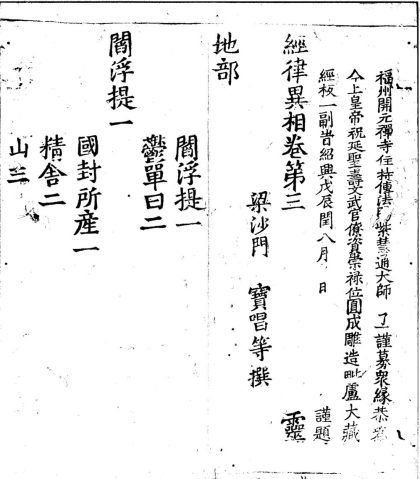 福州開元禪寺住持傳法賜紫慧通大師 了一謹募衆緣恭爲
今上皇帝祝延聖壽文武官僚資崇禄位圓成雕造毗盧大藏
經板一副旹紹興戊辰閏八月 日 謹題
經律異相卷第三 靈
梁沙門 寶唱等撰
地部
閻浮提一
鬱單曰二
閻浮提一
國封所産一
精舍二
山三